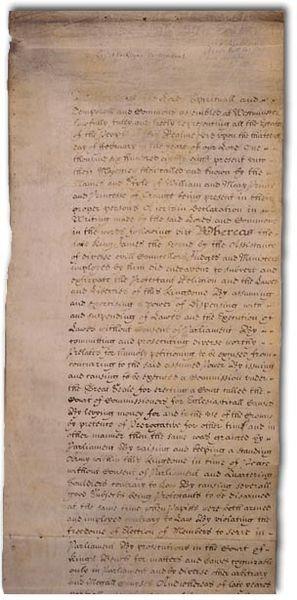 Lords Spirituall and
Temporall and Commons assembled at Westminster
lawfully fully and freely representing all the Estates
of the People of this Realme did upon the thirteenth
day of February in the yeare of our Lord One
thousand six hundred eighty eight present unto
their Majesties then called and known by the
Names and Stile of William and Mary Prince
and Princesse of Orange being present in their
proper persons a certain Declaration in
Writing made by the said Lords and Commons
in the words following viz Whereas the
late King James the second by the Assistance
of diverse evill Councellors Judges and Ministers
imployed by him did endeavour to subvert and
extirpate the Protestant Religion and the Lawes
and Liberties of this Kingdome By assuming
and exercising a power of dispensing with
and suspending of Lawes and the Execution of
Lawes without Consent of Parliament By
committing and prosecuting diverse worthy
Prelates for humbly petitioning to be excused from
concurring to the said assumed power By issuing
and causing to be executed a Commission under
the Great Seale for erecting a Court called the
Court of Commissioners for Ecclesiasticall Causes
By levying money for and to the use of the Crowne
by pretence of Prerogative for other time and in
other manner then the same was granted by
Parliament By raising and keeping a standing
Army within this Kingdome in time of Peace
without Consent of Parliament and quartering
Souldiers contrary to Law By causing severall
good Subjects being Protestants to be disarmed
at the same time when Papists were both armed
and imployed contrary to Law By violating the
freedome of Election of Members to serve in
Parliament By prosecutions in the Court of
Kings Bench for matters and causes cognizable
onely in Parliament and by diverse other arbitrary
and illegall courses And whereas of late yeares